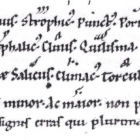 us. Strophic⁹. Punct⁹. Por
phalic⁹. Cliuus. Quilisma.
Salicus. Climac⁹. Torcul
minor. Ac maior. non p
signes erras qui plurima